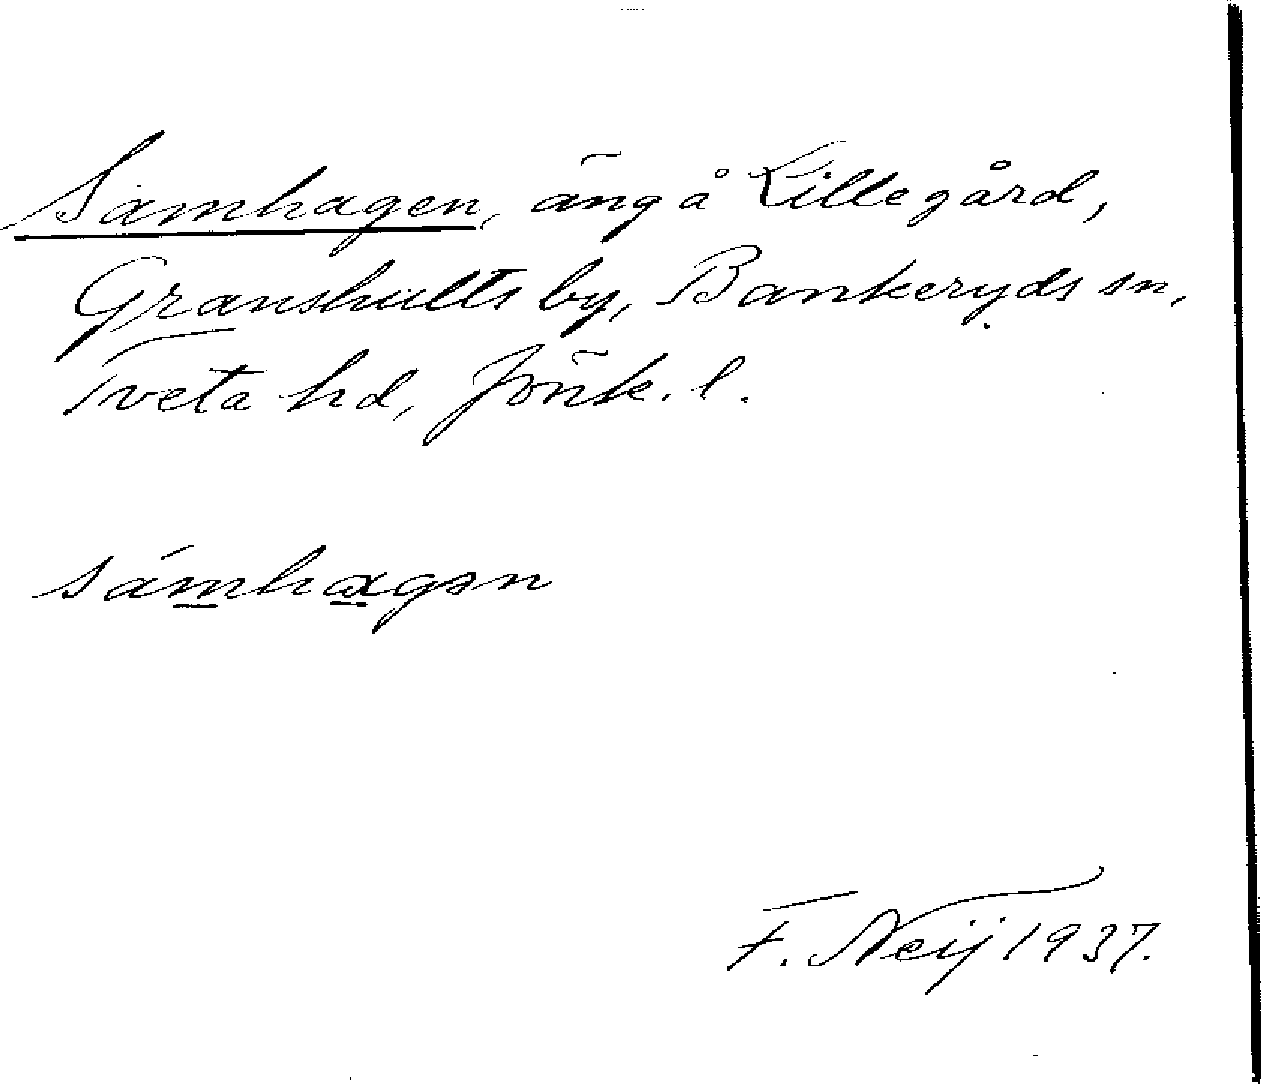 Samhagen, äng å Lillegård,
Granshults by, Bankeryds sn,
Tveta hd, Jönk. l.
sámhagən
F. Neij 1937.